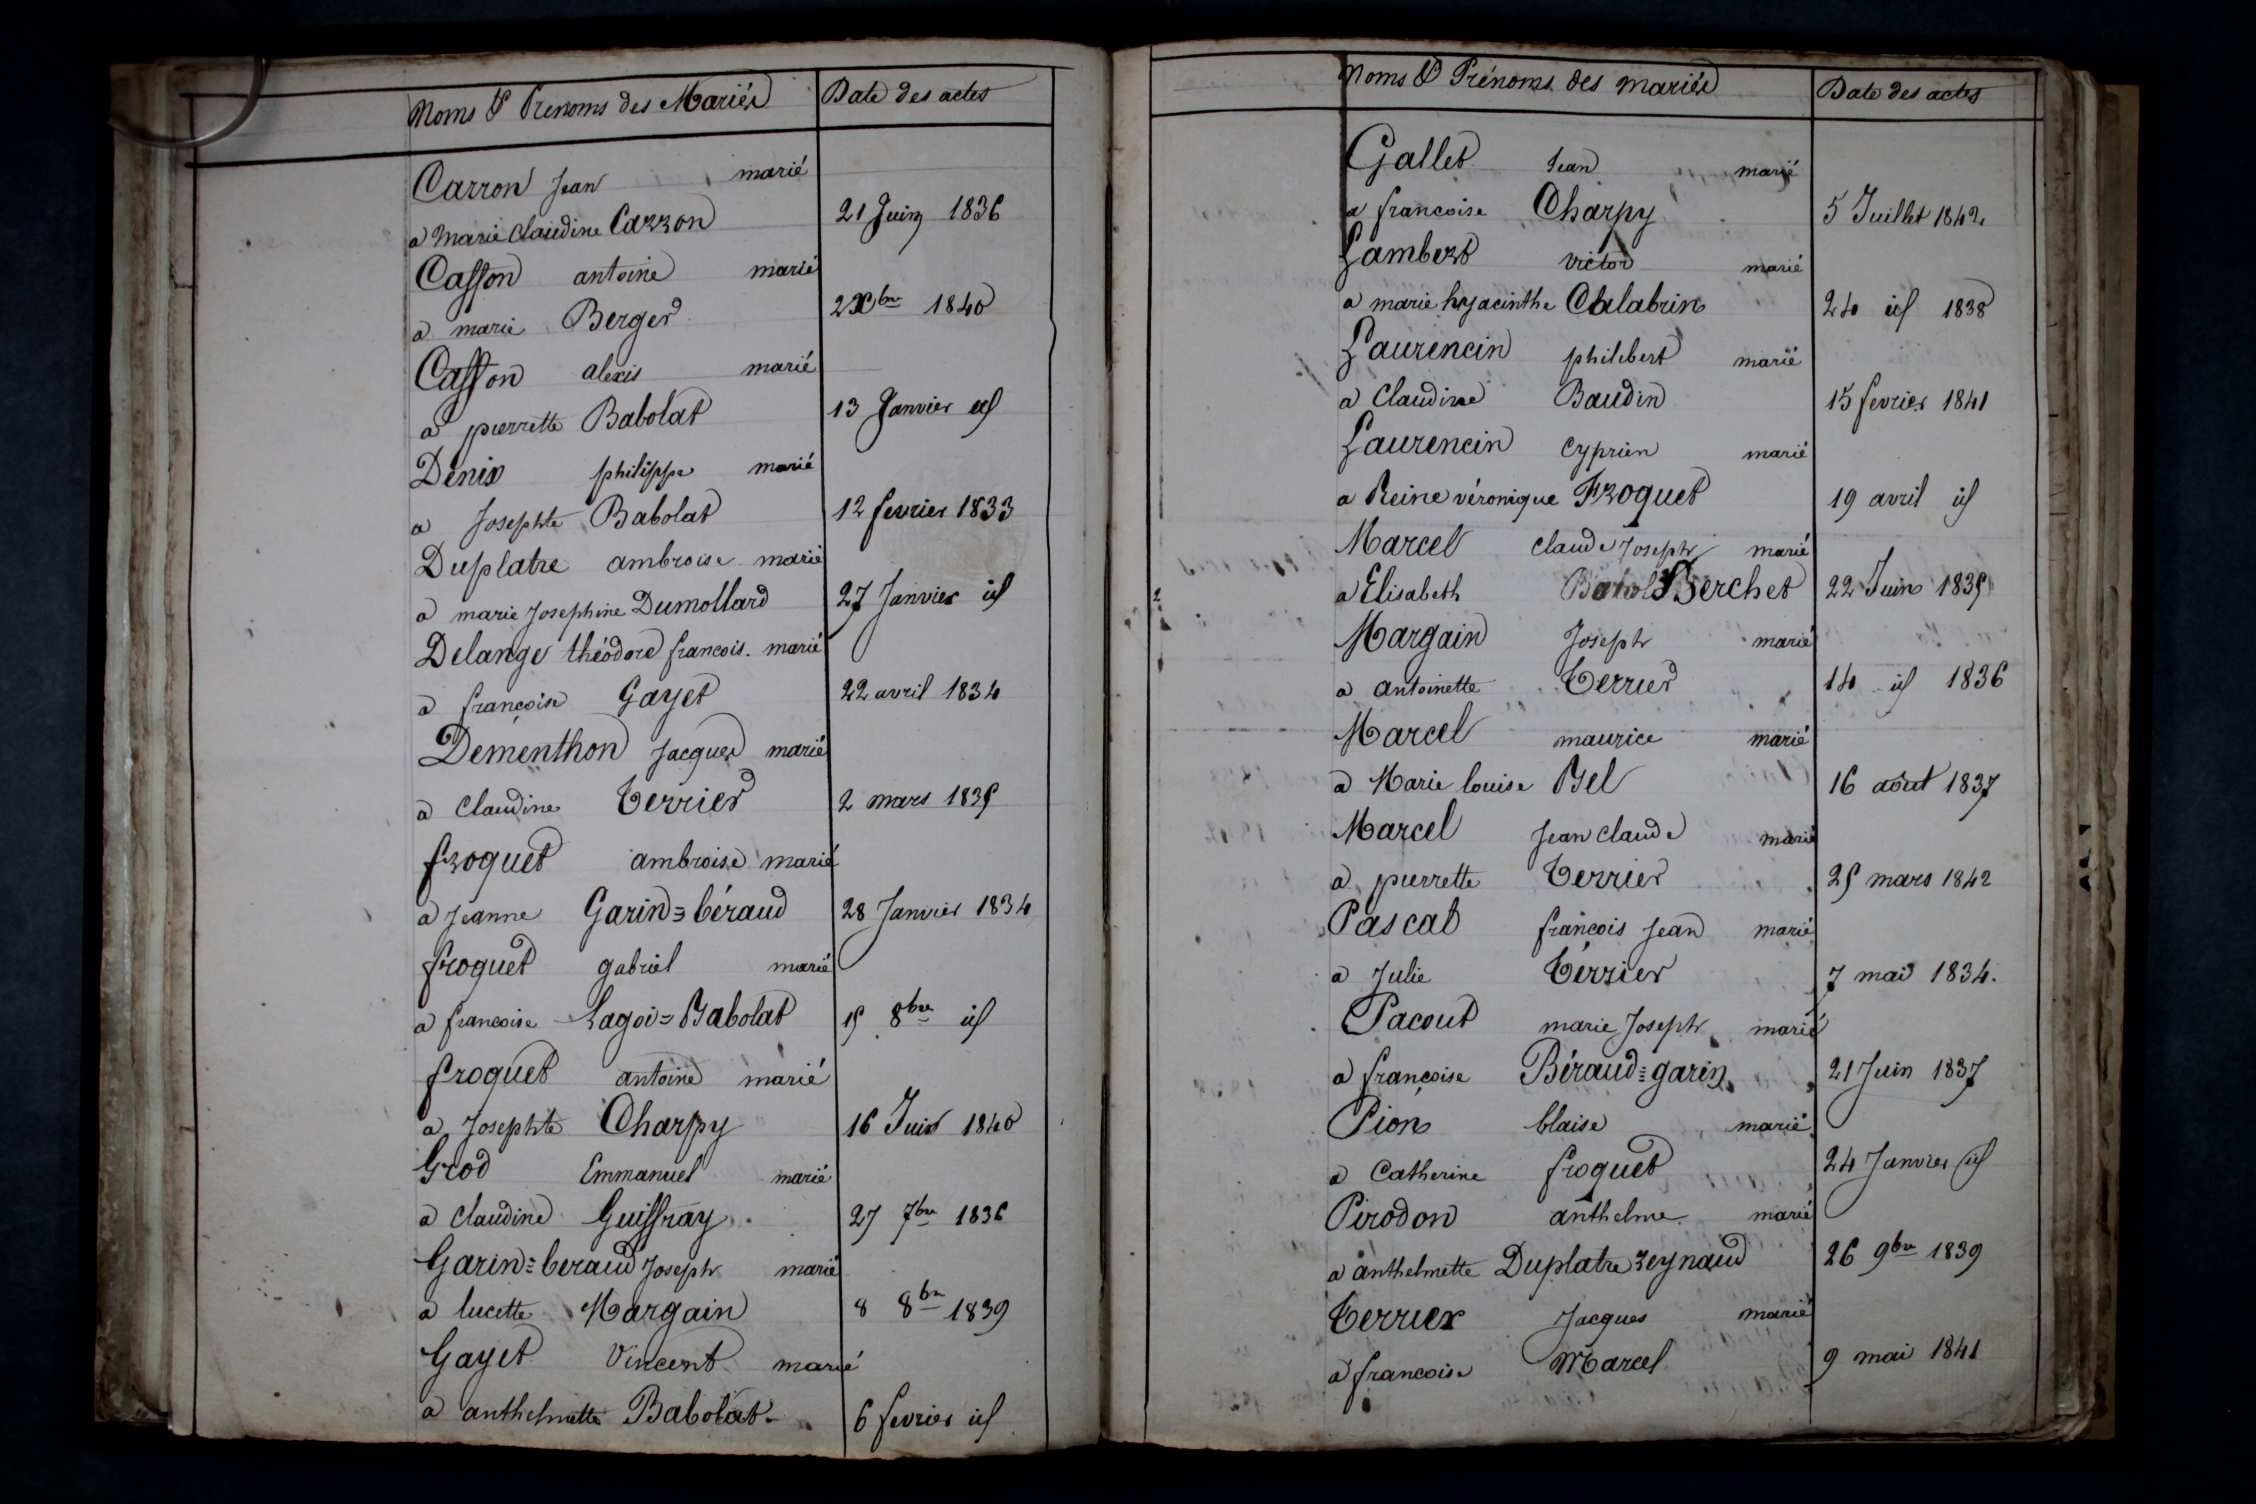 Noms & Prénoms des Mariés Date des actes
Carron Jean marié
a Marie Claudine Carron 21 Juin 1836
Casson antoine marié
a marie Berger 2 Xbre 1840
Casson alexis marié
a pierrette Babolat 13 Janvier id
Denix philippe marié
a Josephte Babolat 12 fevrier 1833
Duplatre ambroise marié
a marie Josephine Dumollard 27 Janvier id
Delange théodore francois marié
a françoise Gayet 22 avril 1834
Dementhon Jacques marié
a Claudine Terrier 2 mars 1835
froquet ambroise marié
a Jeanne Garin=béraud 28 Janvier 1834
froquet gabriel marié
a francoise Lagoi=Babolat 15 8bre id
froquet antoine marié
a Josephte Charpy 16 Juin 1840
Grod Emmanuel marié
a Claudine Guiffray 27 7bre 1836
Garin=beraud Joseph marié
a lucette Margain 8 8bre 1839
Gayet Vincent marié
a anthelmette Babolat 6 fevrier id
Noms & Prénoms des mariés Date des actes
Gallet Jean marié
a francoise Charpy 5 Juillet 1842
Lambert victor marié
a marie hyacinthe Chalabrin 24 id 1838
Laurencin philibert marié
a Claudine Baudin 15 fevrier 1841
Laurencin Cyprien marié
a Reine véronique Froquet 19 avril id
Marcel Claude Joseph marié
a Elisabeth Berchet 22 Juin 1835
Margain Joseph marié
a antoinette Terrier 14 id 1836
Marcel maurice marié
a Marie louise Bel 16 août 1837
Marcel Jean claude marié
a pierrette Terrier 25 mars 1842
Pascal françois Jean marié
a Julie Térrier 7 mai 1834.
Pacout marie Joseph marié
a françoise Béraud=garin 21 Juin 1837
Pion blaise marié
a Catherine froquet 24 Janvier id
Pirodon anthelme marié
a anthelmette Duplatre reynaud 26 9bre 1839
Terrier Jacques marié
a francoise Marcel 9 mai 1841